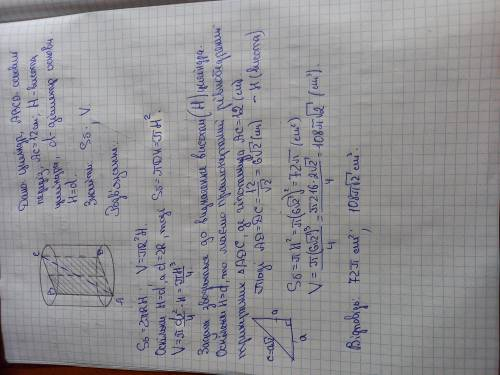 Дано: циліндр, ABCD осьовий
переріз, AC=12 см, H - висота
циліндра, d - діаметр основи
H=d
Знайти: Sб, V.
Розв'язання
C
B
D
A
Sб=2πRH V=πR²H
Оскільки H=d, а d=2R, тоді Sб=πDH=πH².
V=π d²/4 · H = πH³/4
Задача зводиться до визначення висоти (H) циліндра.
Оскільки H=d, то маємо прямокутний рівнобедрений
трикутник △ADC, де гіпотенуза AC=12 (см)
Тоді AD=DC= 12/√2 = 6√2 (см) - H (висота)
c=a√2
a
a
Sб=πH²=π(6√2)²=72π (см²)
V= π(6√2)³/4 = π216·2√2/4 = 108π√2 (см³).
Відповідь: 72π см², 108π√2 см³.